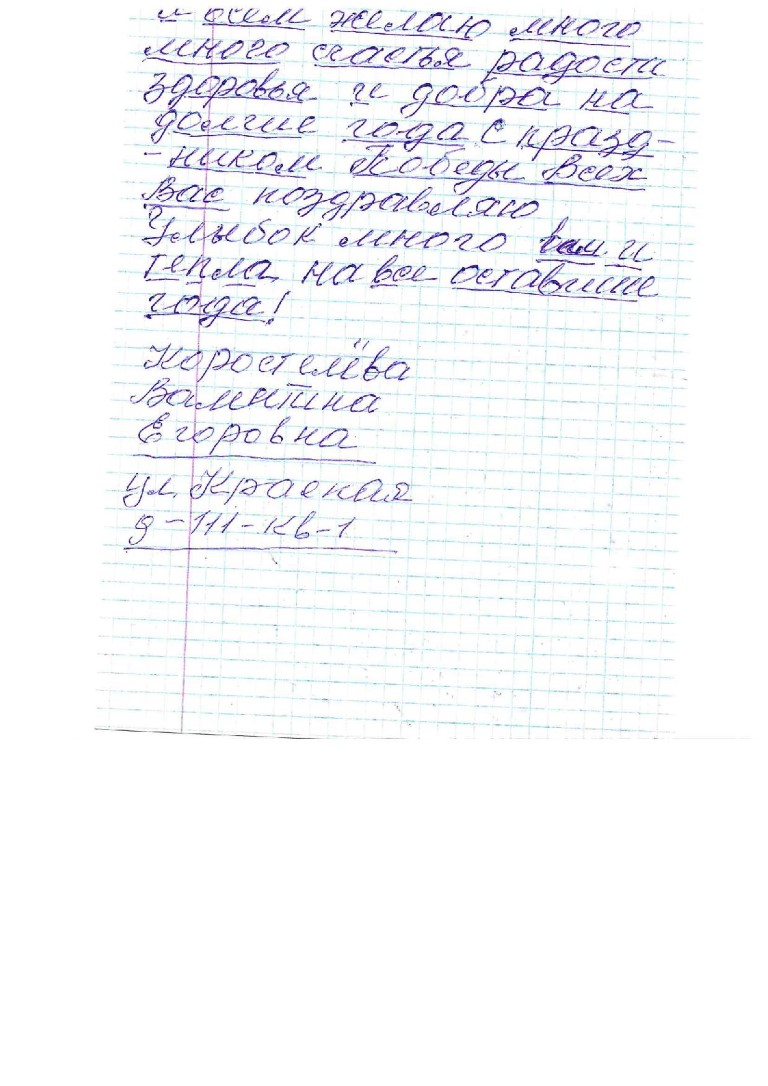 и всем желаю много
много счастья радости
здоровья и добра на
долгие года с празд-
-ником Победы Всех
Вас поздравляю
Улыбок много вам и
тепла на все оставшие
года!
Коростелёва
Валентина
Егоровна
ул. Красная
д-111-кв-1